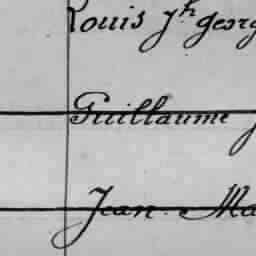 Louis Jh georg
Guillaume J
Jean Ma